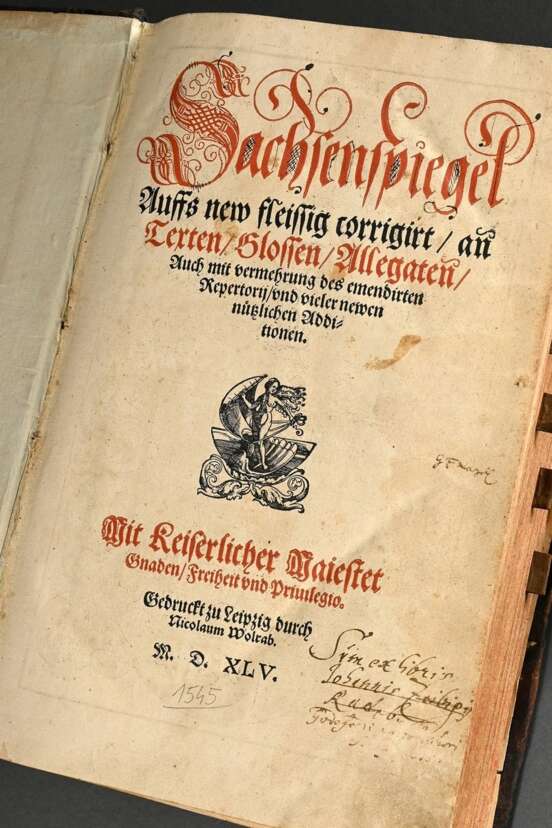 Sachsenspiegel
Auffs new fleissig corrigirt/ an
Texten/ Glossen/ Allegaten/
Auch mit vermehrung des emendirten
Repertorij/ vnd vieler newen
nützlichen Addi-
tionen.
Mit Keiserlicher Maiestet
Gnaden/ Freiheit vnd Priuilegio.
Gedruckt zu Leipzig durch
Nicolaum Wolrab.
M. D. XLV.
1545
Sum ex libris
Johannis